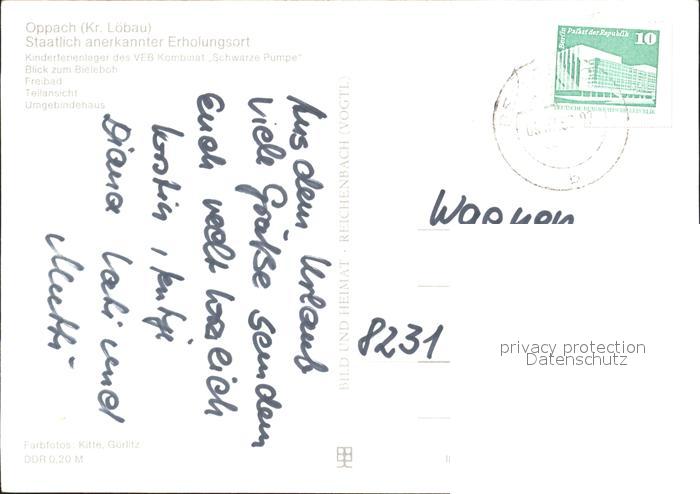 Oppach (Kr. Löbau)
Staatlich anerkannter Erholungsort
Kinderferienlager des VEB Kombinat „Schwarze Pumpe"
Blick zum Bieleboh
Freibad
Teilansicht
Umgebindehaus
Aus dem Urlaub
viele Grüße senden
Euch recht herzlich
Diana und
Mutti
Farbfotos: Kitte, Görlitz
DDR 0,20 M
BILD UND HEIMAT · REICHENBACH (VOGTL)
Berlin Palast der Republik
10
DEUTSCHE DEMOKRATISCHE REPUBLIK
8231
privacy protection
Datenschutz